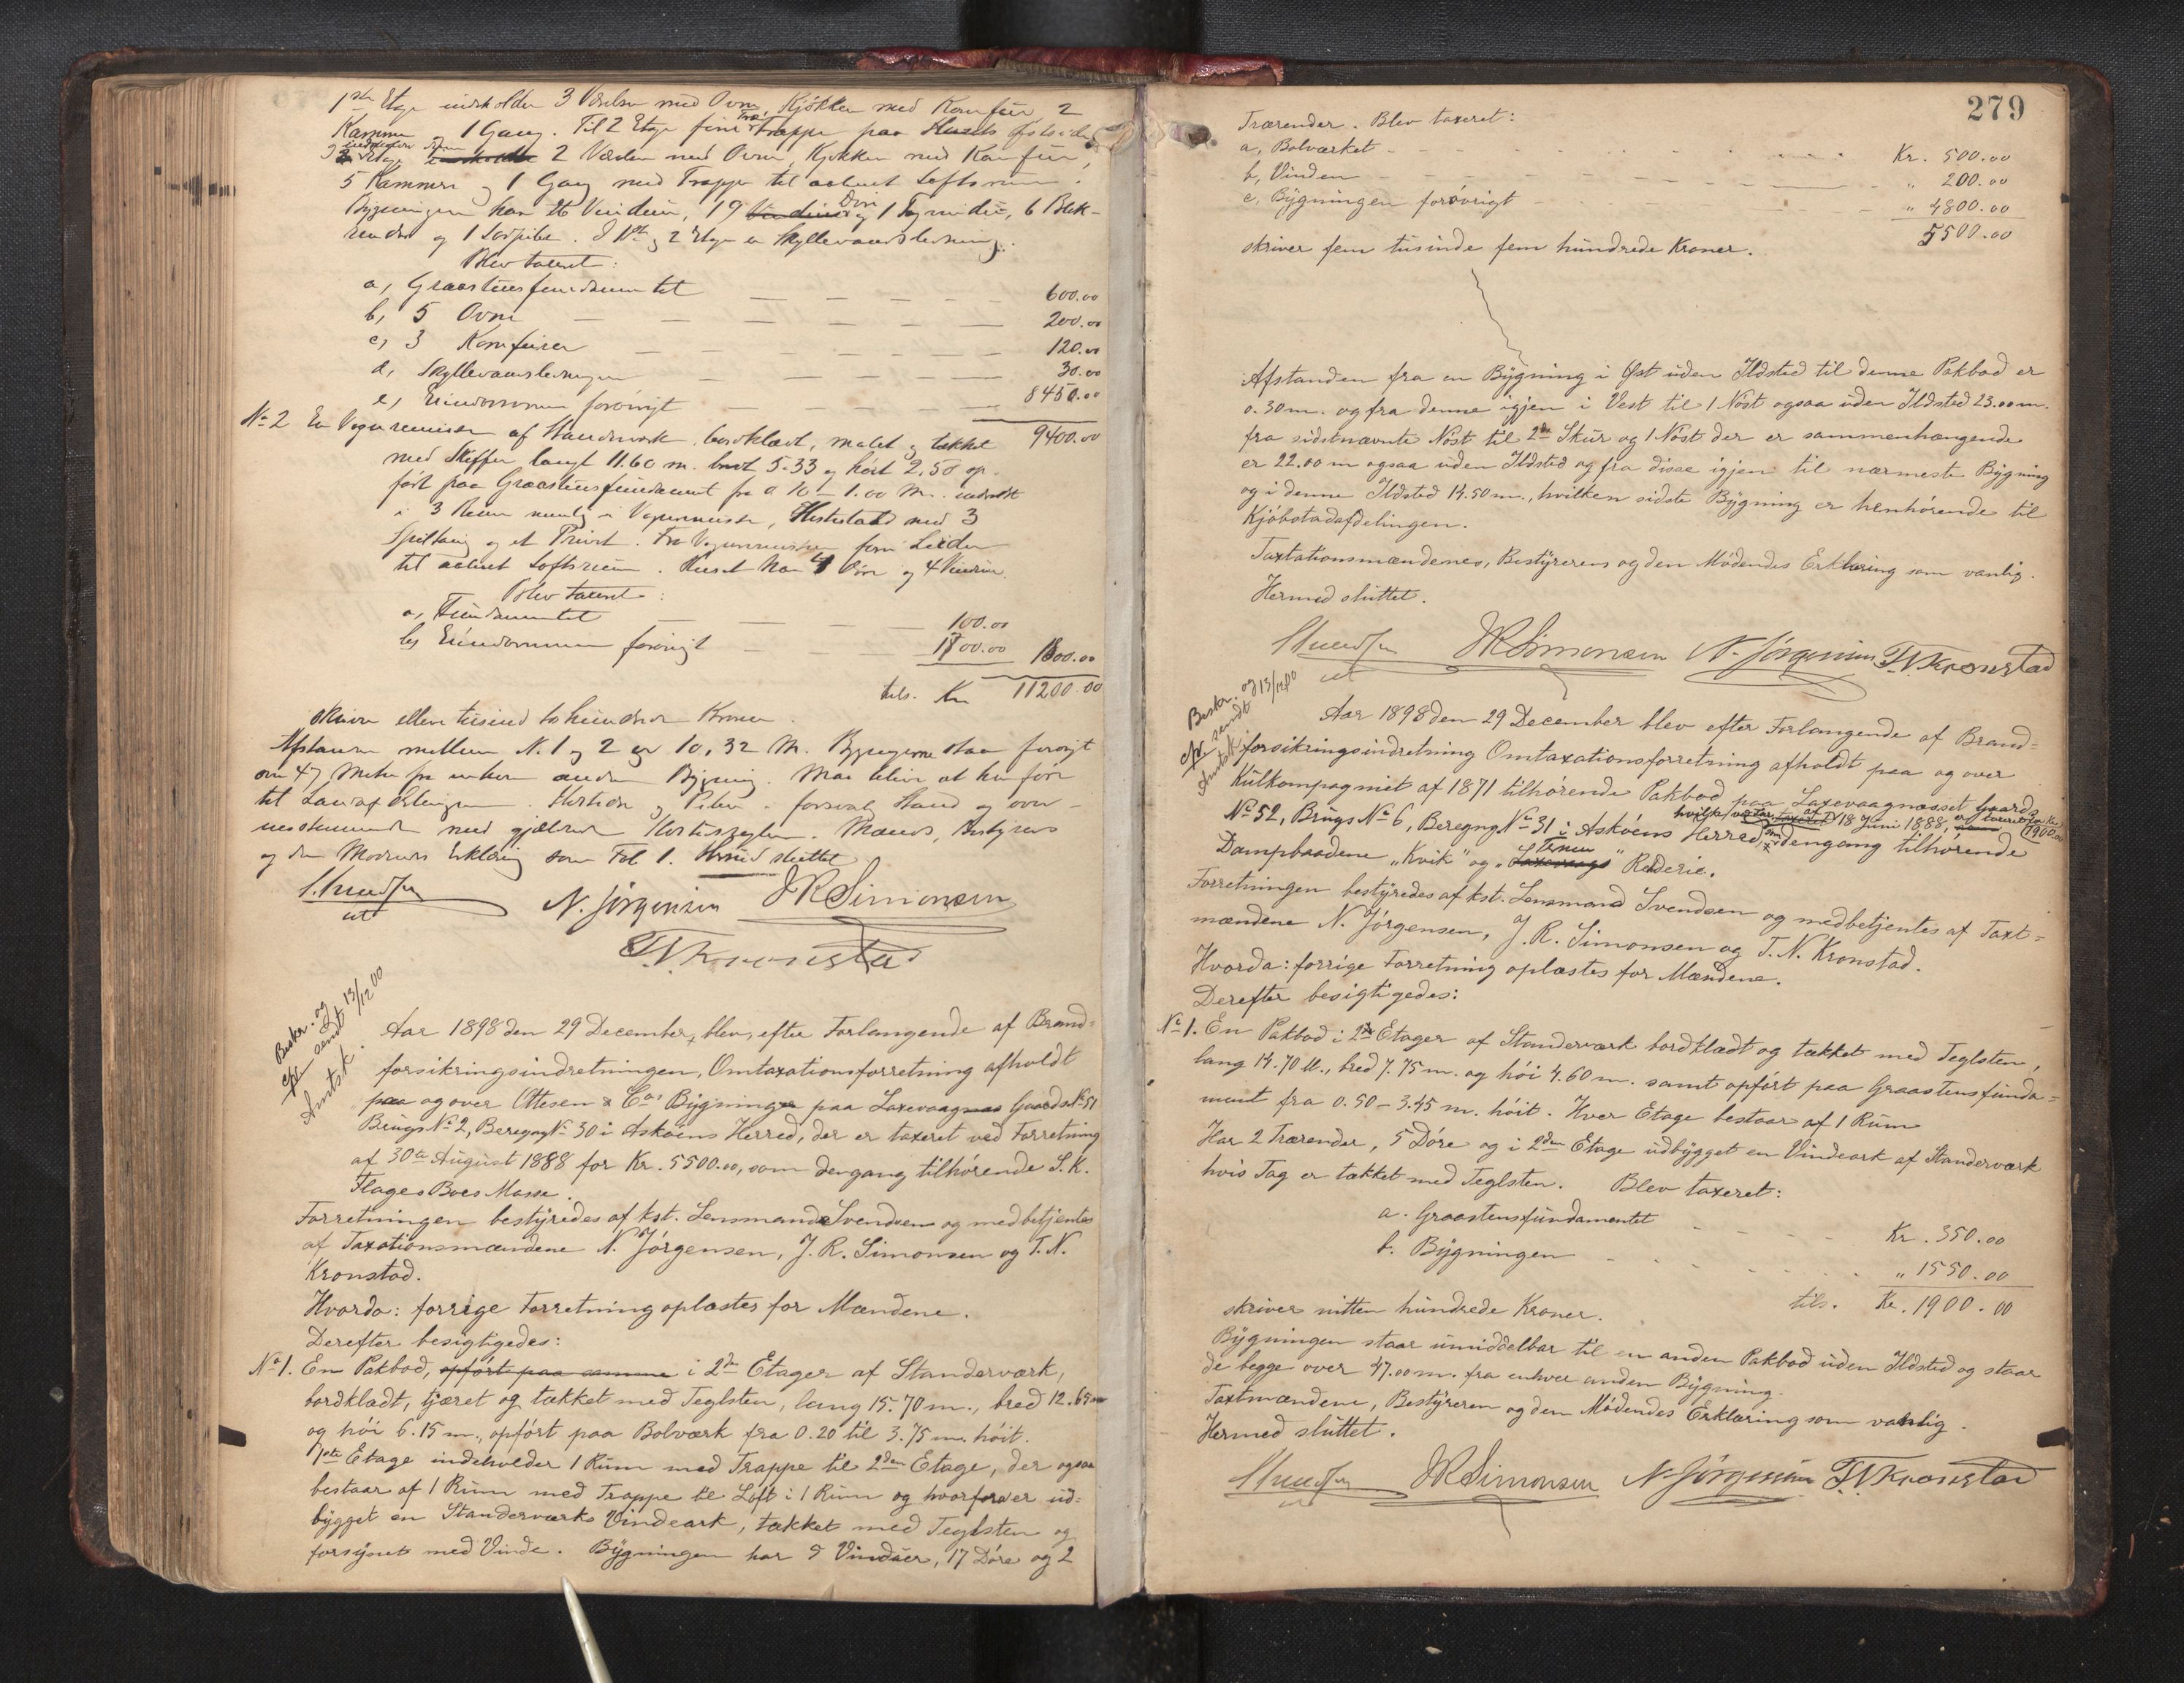 1ste Etage indeholder 3 Værelser med Ovne, Kjøkken med Komfür 2
Kammer og 1 Gang. Til 2 Etage fører Træ Trappe paa Husets Østside
og 2 Etage indeholder 2 Værelser med Ovne, Kjøkken med Komfür,
5 Kammere og 1 Gang med Trappe til aabent Loftsrum.
Bygningen har 26 Vinduer, 19 Vinduer Døre og 1 Tagvindue, 6 Blik-
render og 1 Sodpibe. I 1ste og 2 Etage er Skyllevandsledning.
Blev taxeret:
a, Graastensfundamentet 600.00
b, 5 Ovne 200.00
c, 3 Komfürer 120.00
d, Skyllevandsledningen 30.00
e, Eiendommen forøvrigt 8450.00
9400.00
No 2 En Vognremise af Standerværk, bordklædt, malet og tækket
med Skiffer langt 11.60 m. bredt 5.33 og høit 2.50 op-
ført paa Graastensfundament fra 0.10 – 1.00 M. inddelt
i 3 Rum nemlig i Vognremisse, Hestestald med 3
Spiltaug og et Privet. Fra Vognremissen fører Leider
til aabent Loftsrum. Huset har 4 Døre og 4 Vinduer.
Blev taxeret:
a, Fundamentet 100.00
b, Eiendommen forøvrigt 1700.00 1800.00
tils. Kr 11200.00
skriver elleve tusind to hundrede Kroner.
Afstanden mellem N. 1 og 2 er 10,32 M. Bygningerne staar forøvrigt
over 47 Meter fra enhver anden Bygning. Maa blive at henføre
til Landafdelingen. Ildsteder og Piber i forsvarlig Stand og over-
ensstemmende med gjældende Ildsteds regler. Mænds, Bestyrers
og den Mødendes Erklæring som Fol 1. Hermed sluttet
Svendsen N. Jørgensen JRSimonsen
cst
T.N. Kronstad
Beskr. og
sendt 13/12 00
Amtsk.
Aar 1898 den 29 December, blev, efter Forlangende af Brand-
forsikringsindretningen, Omtaxationsforretning afholdt
paa og over Ottesen & Cos Bygninger paa Laxevaagnæs Gaards No 51
Brugs No 2, Beregng No 30 i Askøens Herred, der er taxeret ved Forretning
af 30te August 1888 for Kr. 5500.00, som dengang tilhørende S. K.
Flages Boes Masse.
Forretningen bestyredes af kst. Lensmand Svendsen og medbetjentes
af Taxationsmændene N. Jørgensen, J. R. Simonsen og T. N.
Kronstad.
Hvorda: forrige Forretning oplæstes for Mændene.
Derefter besigtigedes:
No 1. En Pakbod, opført paa samme i 2de Etager af Standerværk,
bordklædt, tjæret og tækket med Teglsten, lang 15.70 m., bred 12.65 m
og høi 6.15 m., opført paa Bolværk fra 0.20 til 3.75 m. høit.
1ste Etage indeholder 1 Rum med Trappe til 2den Etage, der ogsaa
bestaar af 1 Rum med Trappe til Loft i 1 Rum og hvorfra er ud-
bygget en Standerværks Vindeark, tækket med Teglsten og
forsynet med Vinde. Bygningen har 9 Vinduer, 17 Døre og 2
279
Trærender. Blev taxeret:
a, Bolværket Kr. 500.00
b, Vinden " 200.00
c, Bygningen forøvrigt " 4800.00
5500.00
skriver fem tusinde fem hundrede Kroner.
Afstanden fra en Bygning i Øst uden Ildsted til denne Pakbod er
0.30 m. og fra denne igjen i Vest til 1 Nøst ogsaa uden Ildsted 23.00 m.
fra sidstnævnte Nøst til 2de Skur og 1 Nøst der er sammenhængende
er 22.00 m ogsaa uden Ildsted og fra disse igjen til nærmeste Bygning
og i denne Ildsted 14.50 m., hvilken sidste Bygning er henhørende til
Kjøbstadafdelingen.
Taxtationsmændenes, Bestyrerens og den Mødendes Erklæring som vanlig.
Hermed sluttet.
Svendsen JRSimonsen N. Jørgensen T.N. Kronstad
cst
Beskr. og 13/12 00
sendt
Amtsk.
Aar 1898 den 29 December blev efter Forlangende af Brand-
forsikringsindretning Omtaxationsforretning afholdt paa og over
Kulkompagniet af 1871 tilhørende Pakbod paa Laxevaagnæsset Gaards
No 52, Brugs No 6, Beregng No 31 i Askøens Herred, som dengang tilhørende
hvilke var taxeret 18 Juni 1888, er taxeret for Kr. 1900.00
Dampbaadene "Kvik" og "Laxevaags" Rederie.
Forretningen bestyredes af kst. Lensmand Svendsen og medbetjentes af Taxt-
mændene N. Jørgensen, J. R. Simonsen og T. N. Kronstad.
Hvorda: forrige Forretning oplæstes for Mændene.
Derefter besigtigedes:
No 1. En Pakbod i 2de Etager af Standerværk bordklædt og tækket med Teglsten,
lang 14.70 M., bred 7.75 m. og høi 4.60 m. samt opført paa Graastensfunda-
ment fra 0.50 – 3.45 m. høit. Hver Etage bestaar af 1 Rum
Har 2 Trærender, 5 Døre og i 2den Etage udbygget en Vindeark af Standerværk
hvis Tag er tækket med Teglsten. Blev taxeret:
a. Graastensfundamentet Kr. 350.00
b. Bygningen " 1550.00
tils. Kr. 1900.00
skriver nitten hundrede Kroner.
Bygningen staar umiddelbar til en anden Pakbod uden Ildsted og staar
de begge over 47.00 m. fra enhver anden Bygning.
Taxtmændene, Bestyreren og den Mødendes Erklæring som vanlig.
Hermed sluttet.
Svendsen JRSimonsen N. Jørgensen T.N. Kronstad